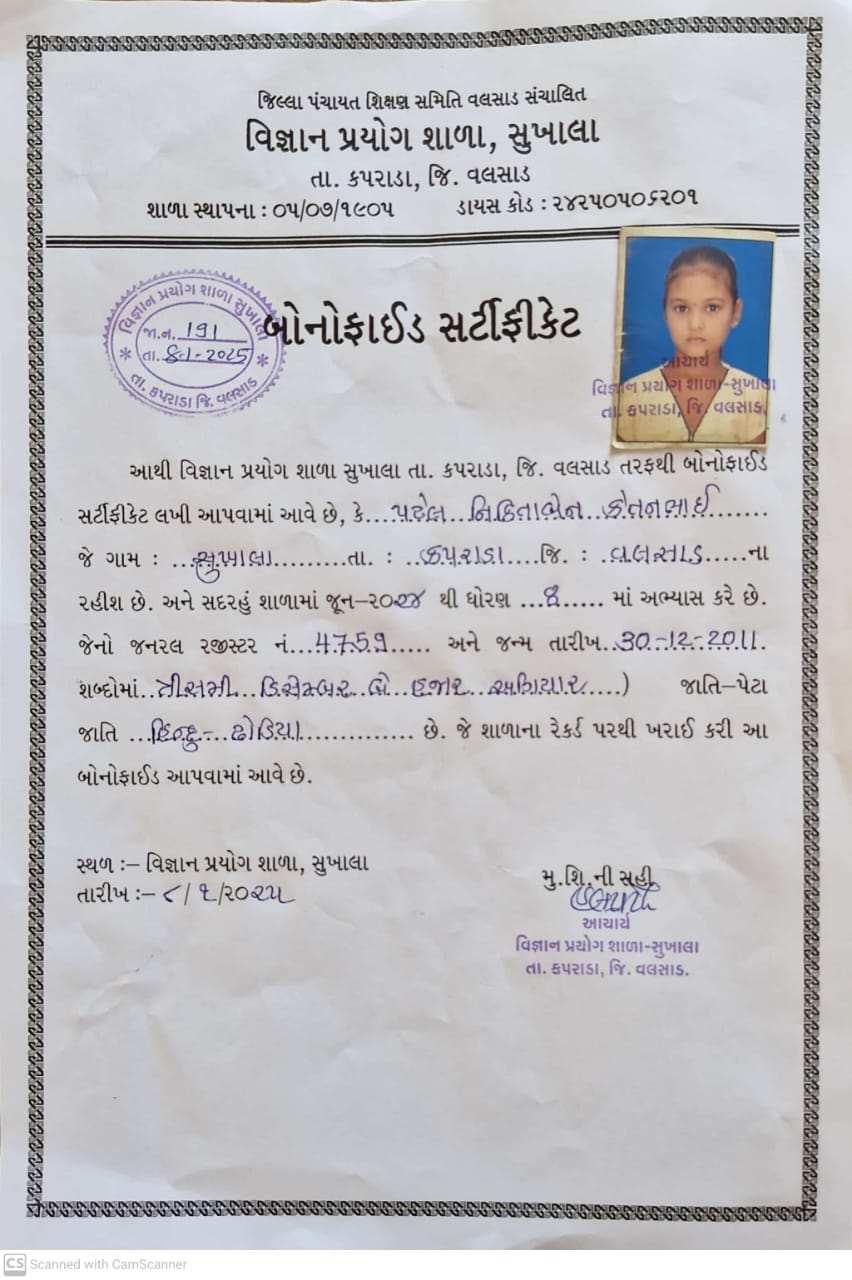 જિલ્લા પંચાયત શિક્ષણ સમિતિ વલસાડ સંચાલિત
વિજ્ઞાન પ્રયોગ શાળા, સુખાલા
તા. કપરાડા, જિ. વલસાડ
શાળા સ્થાપના : ૦૫/૦૭/૧૯૦૫ ડાયસ કોડ : ૨૪૨૫૦૫૦૬૨૦૧
વિજ્ઞાન પ્રયોગ શાળા સુખાલા
જા.ન. 191
તા. 8-1-2025
તા. કપરાડા જિ. વલસાડ
બોનોફાઈડ સર્ટીફીકેટ
આચાર્ય
વિજ્ઞાન પ્રયોગ શાળા-સુખાલા
તા. કપરાડા, જિ. વલસાડ.
આથી વિજ્ઞાન પ્રયોગ શાળા સુખાલા તા. કપરાડા, જિ. વલસાડ તરફથી બોનોફાઈડ
સર્ટીફીકેટ લખી આપવામાં આવે છે, કે....પટેલ...નિકિતાબેન...કેતનભાઈ.......
જે ગામ : ...સુખાલા.........તા. : ..કપરાડા....જિ. : ..વલસાડ.....ના
રહીશ છે. અને સદરહું શાળામાં જૂન-૨૦૨૪ થી ધોરણ ...8..... માં અભ્યાસ કરે છે.
જેનો જનરલ રજીસ્ટર નં...4759..... અને જન્મ તારીખ..30-12-2011.
શબ્દોમાં..ત્રીસમી...ડિસેમ્બર..બે..હજાર..અગિયાર....) જાતિ-પેટા
જાતિ ...હિન્દુ-..ઢોડિયા............... છે. જે શાળાના રેકર્ડ પરથી ખરાઈ કરી આ
બોનોફાઈડ આપવામાં આવે છે.
સ્થળ :- વિજ્ઞાન પ્રયોગ શાળા, સુખાલા
તારીખ :- ૮/૧/૨૦૨૫
મુ.શિ.ની સહી
આચાર્ય
વિજ્ઞાન પ્રયોગ શાળા-સુખાલા
તા. કપરાડા, જિ. વલસાડ.
CS Scanned with CamScanner